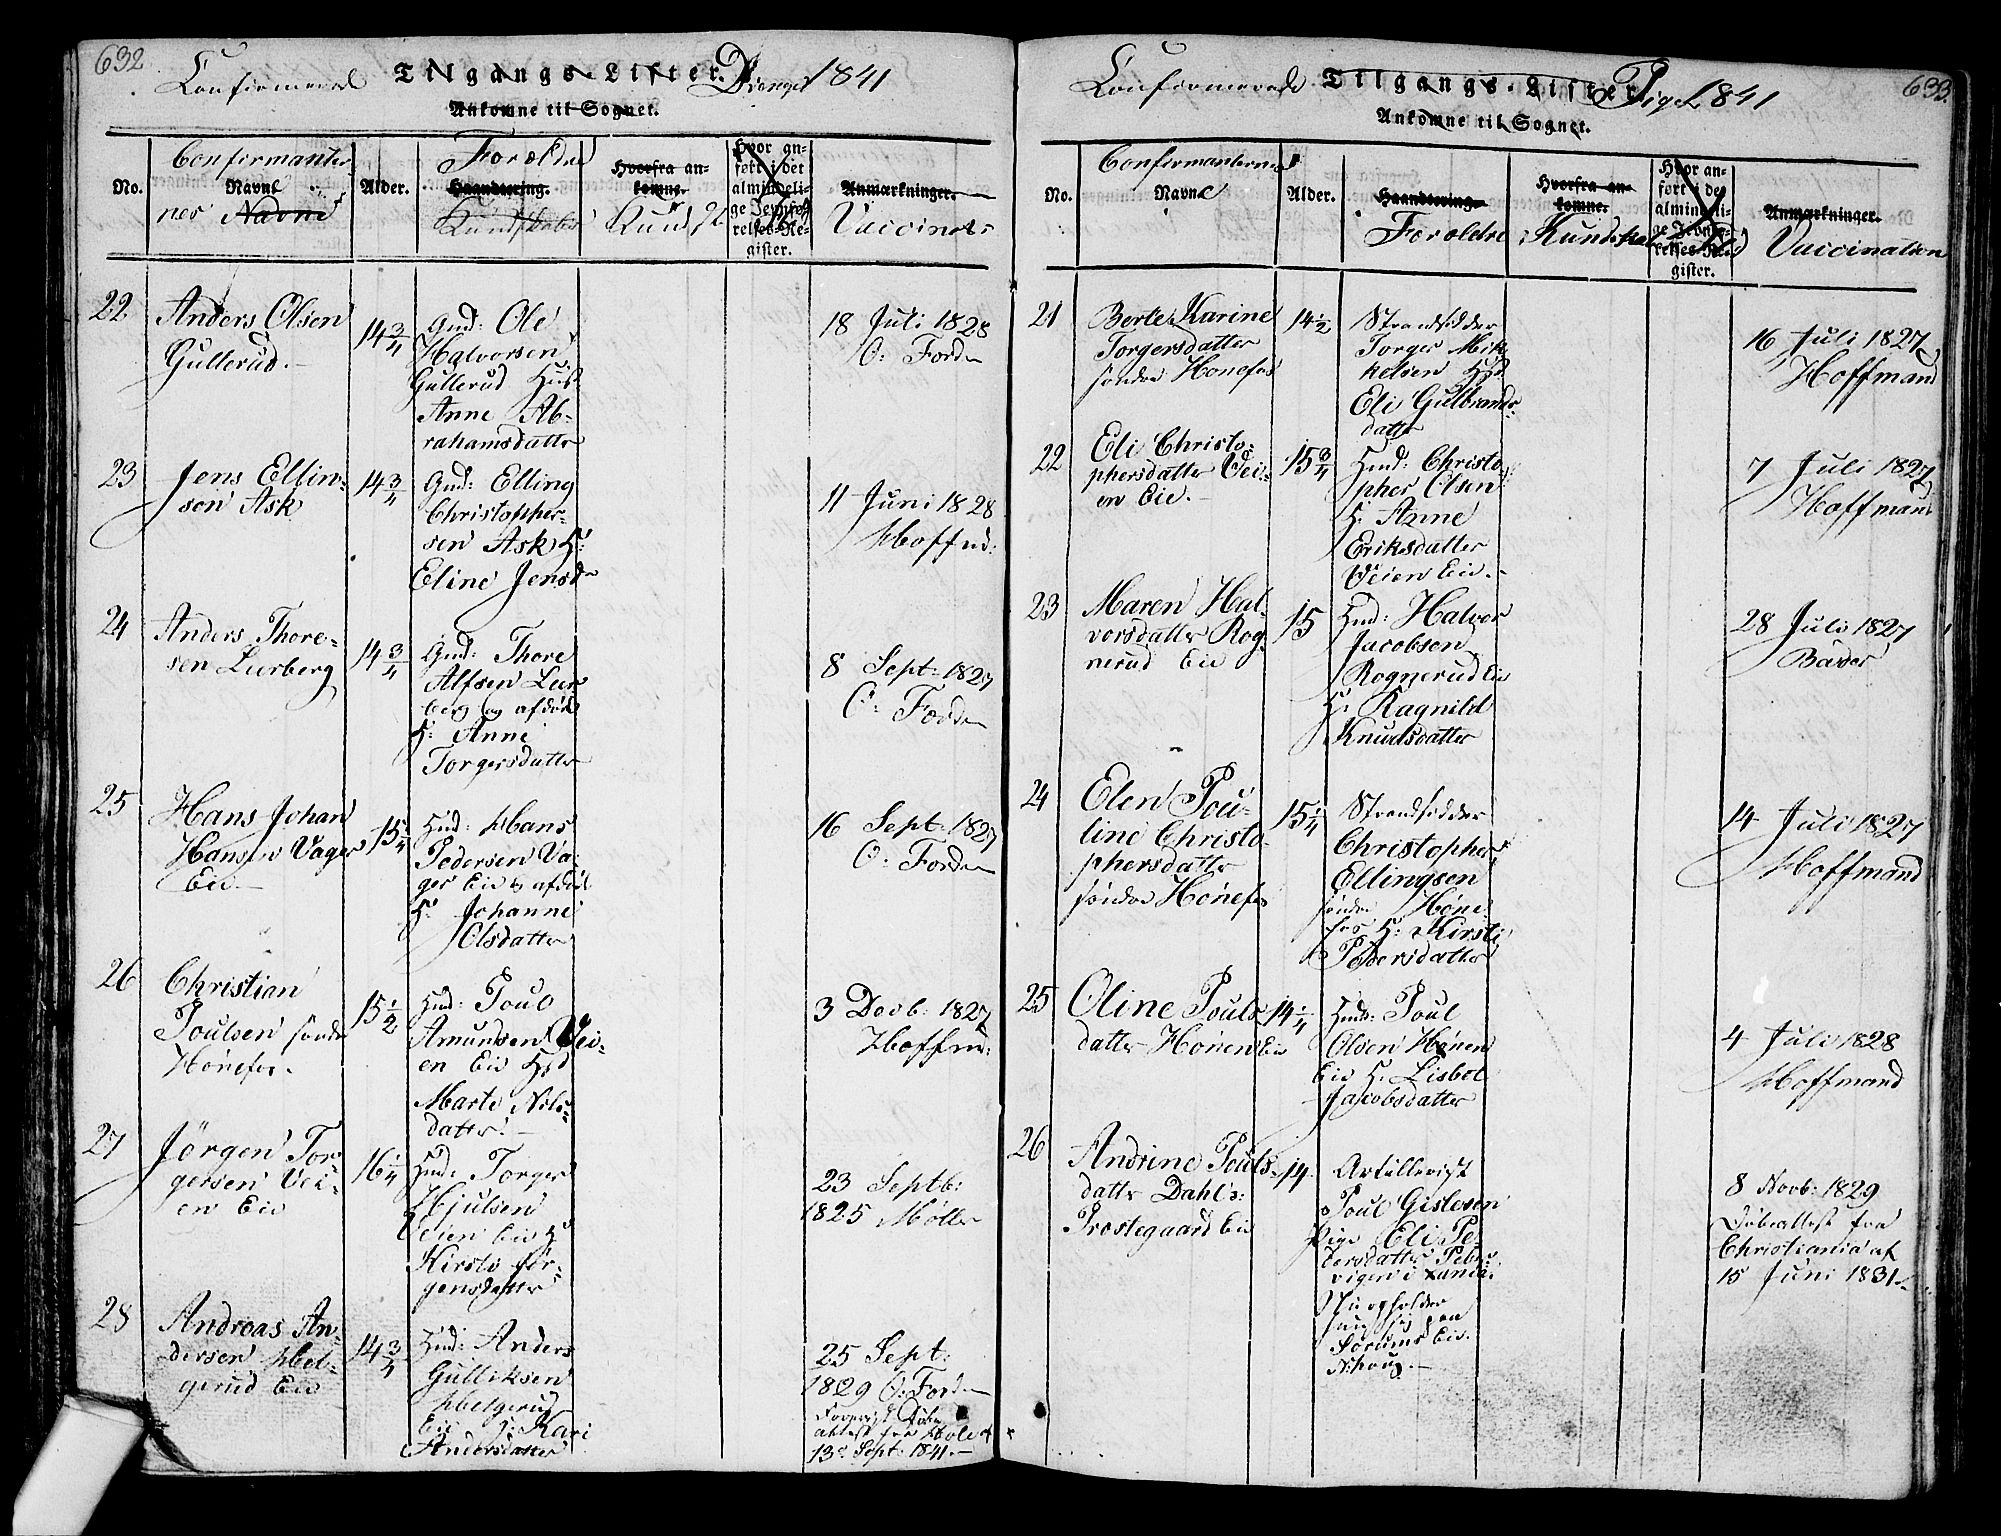 632
Confirmerede Tilgangs-Lister. Drenge 1841
Ankomne til Sognet.
No.
Confirmanter
Navne
nes Navne
Alder.
Forældre
Haandtering.
Kundskaber
Hvorfra an-
komne.
Kundsk
Hvor an-
ført i det
almindeli-
ge Jevnfø-
relses-Re-
gister.
Anmærkninger.
Vaccinat:
22
Anders Olsen
Gullerud.
14 3/4
Gmd: Ole
Halvorsen
Gullerud Hust
Anne Ab-
rahamsdatter
18 Juli 1828
O: Forden
23
Jens Ellin-
sen Ask
14 3/4
Gmd: Elling
Christopher-
sen Ask H:
Eline Jensd
11 Juni 1828
Hoffm:
24
Anders Thore-
sen Lurberg
14 3/4
Gmd: Thore
Alfsen Lur
berg og afdøde
H: Anne
Torgersdatter
8 Sept: 1827
O: Forden
25
Hans Johan
Hansen Vager
Eie
15 1/4
Hmd: Hans
Pedersen Va-
ger Eie & afdød
H: Johanne
Olsdatter
16 Sept: 1827
O: Forden
26
Christian
Poulsen søndre
Hønefos.
15 1/2
Hmd: Poul
Amundsen Vei-
en Eie H
Marte Nils-
datter.
3 Decb: 1827
Hoffm:
27
Jörgen Tor
gersen Vei-
en Eie
16 1/4
Hmd: Torger
Hjulsen
Veien Eie H
Kirsti Jör-
gensdatter
23 Septb:
1825 Møller
28
Andreas An-
dersen Hel-
gerud Eie
14 3/4
Hmd: Anders
Gulliksen
Helgerud
Eie H: Kari
Andersdatter
25 Sept:
1829 O: Forden
Forevist Døbe
attest fra Hole af
13e Sept: 1841.
633
Confirmerede Tilgangs-Lister Piger 1841
Ankomne til Sognet.
No.
Confirmanternes
Navne
Alder.
Haandtering.
Forældre
Hvorfra an-
komne.
Kundskab
Hvor an-
ført i det
almindeli-
ge Jevnfø-
relses-Re-
gister.
Anmærkninger.
Vaccination
21
Berte Karine
Torgersdatter
søndre Hønefos
14 1/2
Strandsidder
Torger Mik
kelsen H
Eli Gulbrands-
datter
16 Juli 1827
Hoffmand
22
Eli Christo-
phersdatter Vei-
en Eie.
15 3/4
Hmd: Christo-
pher Olsen
H. Anne
Eriksdatter
Veien Eie.
7 Juli 1827
Hoffmand
23
Maren Hal-
vorsdatter Rog-
nerud Eie
15
Hmd: Halvor
Jacobsen
Rognerud Eie
H: Ragnild
Knudsdatter
28 Juli 1827
24
Elen Pou-
line Christo-
phersdatter
søndre Hønefos
15 1/4
Strandsidder
Christopher
Ellingsen
søndre Høne-
fos H: Kirsti
Pedersdatter
14 Juli 1827
Hoffmand
25
Oline Pouls
datter Hønen Eie
14 1/4
Hmd: Poul
Olsen Hønen
Eie H: Lisbet
Jacobsdatter
4 Juli 1828
Hoffmand
26
Andrine Pouls-
datter Dahl
Præstegaard Eie
14
Artillerist
Poul Gislesen
Pige Eli Pe-
dersdatter Peber
vigen i Xania.
Nu opholder
hun sig paa
Sørums Eie.
8 Novb: 1829
Døbeattest fra
Christiania af
15 Juni 1831.